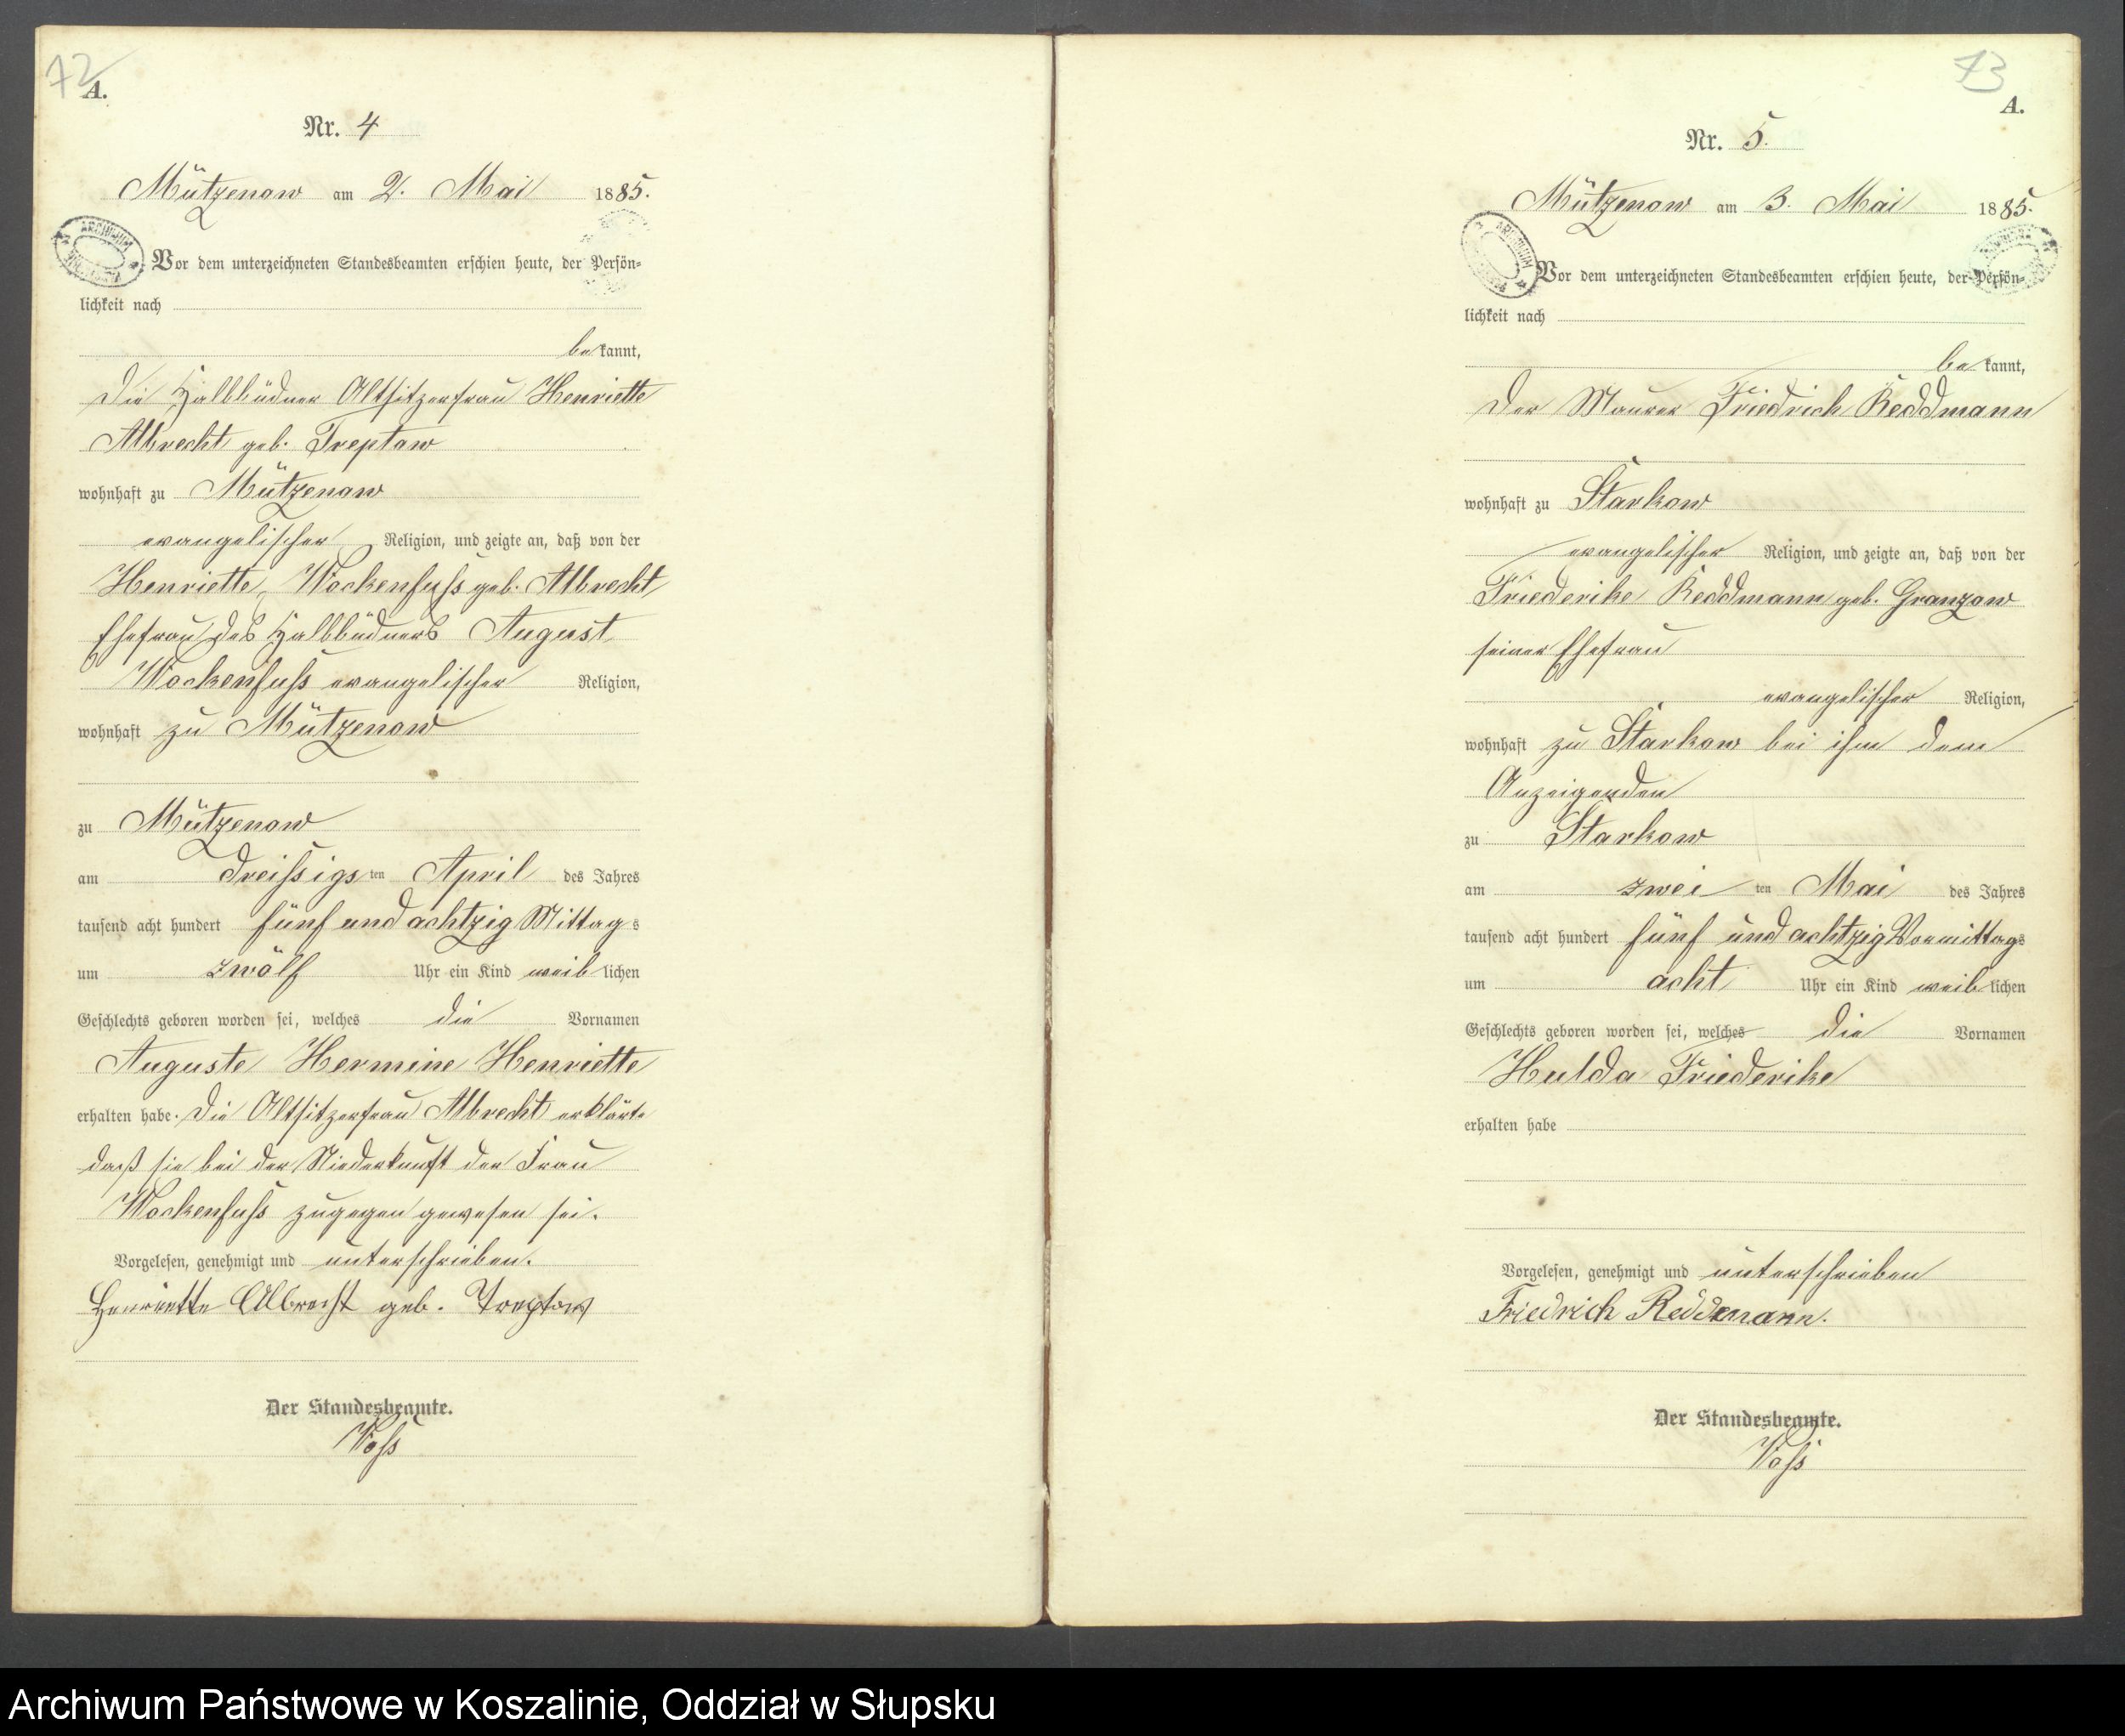 72
A.
Nr. 4
Mützenow am 2. Mai 1885.
Vor dem unterzeichneten Standesbeamten erschien heute, der Persön=
lichkeit nach
bekannt,
die Halbbüdner Altsitzerfrau Henriette
Albrecht geb. Treptow
wohnhaft zu Mützenow
evangelischer Religion, und zeigte an, daß von der
Henriette Wockenfuss geb. Albrecht
Ehefrau des Halbbüdners August
Wockenfuss evangelischer Religion,
wohnhaft zu Mützenow
zu Mützenow
am dreissigsten April des Jahres
tausend acht hundert fünf und achtzig Mittags
um zwölf Uhr ein Kind weiblichen
Geschlechts geboren worden sei, welches die Vornamen
Auguste Hermine Henriette
erhalten habe. Die Altsitzerfrau Albrecht erklärte
daß sie bei der Niederkunft der Frau
Wockenfuss zugegen gewesen sei.
Vorgelesen, genehmigt und unterschrieben.
Henriette Albrecht geb. Treptow
Der Standesbeamte.
Voss
73
A.
Nr. 5.
Mützenow am 3. Mai 1885.
ARCHIWUM
Vor dem unterzeichneten Standesbeamten erschien heute, der Persön=
lichkeit nach
bekannt,
der Maurer Friedrich Reddmann
wohnhaft zu Starkow
evangelischer Religion, und zeigte an, daß von der
Friederike Reddmann geb. Granzow
seiner Ehefrau
evangelischer Religion,
wohnhaft zu Starkow bei ihm dem
Anzeigenden
zu Starkow
am zweiten Mai des Jahres
tausend acht hundert fünf und achtzig Vormittags
um acht Uhr ein Kind weiblichen
Geschlechts geboren worden sei, welches die Vornamen
Hulda Friederike
erhalten habe
Vorgelesen, genehmigt und unterschrieben
Friedrich Reddmann.
Der Standesbeamte.
Voss
Archiwum Państwowe w Koszalinie, Oddział w Słupsku